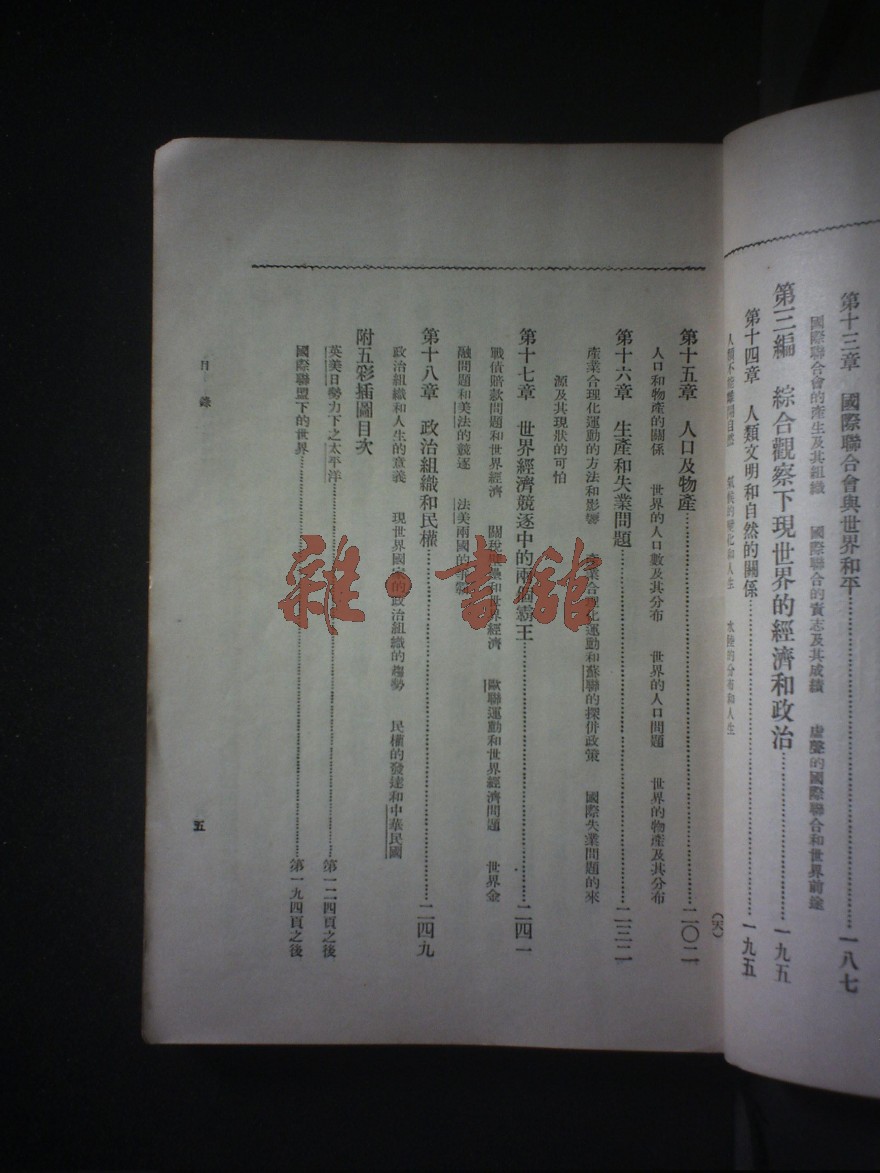 第十三章　國際聯合會與世界和平……一八七
國際聯合會的產生及其組織　國際聯合的責志及其成績　虛聲的國際聯合和世界前途
第三編　綜合觀察下現世界的經濟和政治……一九五
第十四章　人類文明和自然的關係……一九五
人類不能離開自然　氣候的變化和人生　水陸的分布和人生
第十五章　人口及物產……二〇二
人口和物產的關係　世界的人口數及其分布　世界的人口問題　世界的物產及其分布
第十六章　生產和失業問題……二三二
產業合理化運動的方法和影響　產業合理化運動和蘇聯的探併政策　國際失業問題的來
源及其現狀的可怕
第十七章　世界經濟競逐中的兩個霸王……二四一
戰債賠款問題和世界經濟　關稅和世界經濟　歐聯運動和世界經濟問題　世界金
融問題和美法的競逐　法美兩國的
第十八章　政治組織和民權……二四九
政治組織和人生的意義　現世界國家的政治組織的趨勢　民權的發達和中華民國
附五彩插圖目次
英美日勢力下之太平洋……第一二四頁之後
國際聯盟下的世界……第一九四頁之後
目錄
五
雜·書館